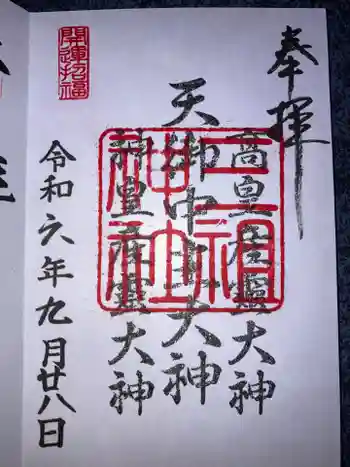 奉拝
高皇産靈大神
天御中主大神
神皇産靈大神
令和六年九月廿八日
開運招福
三祖
神社